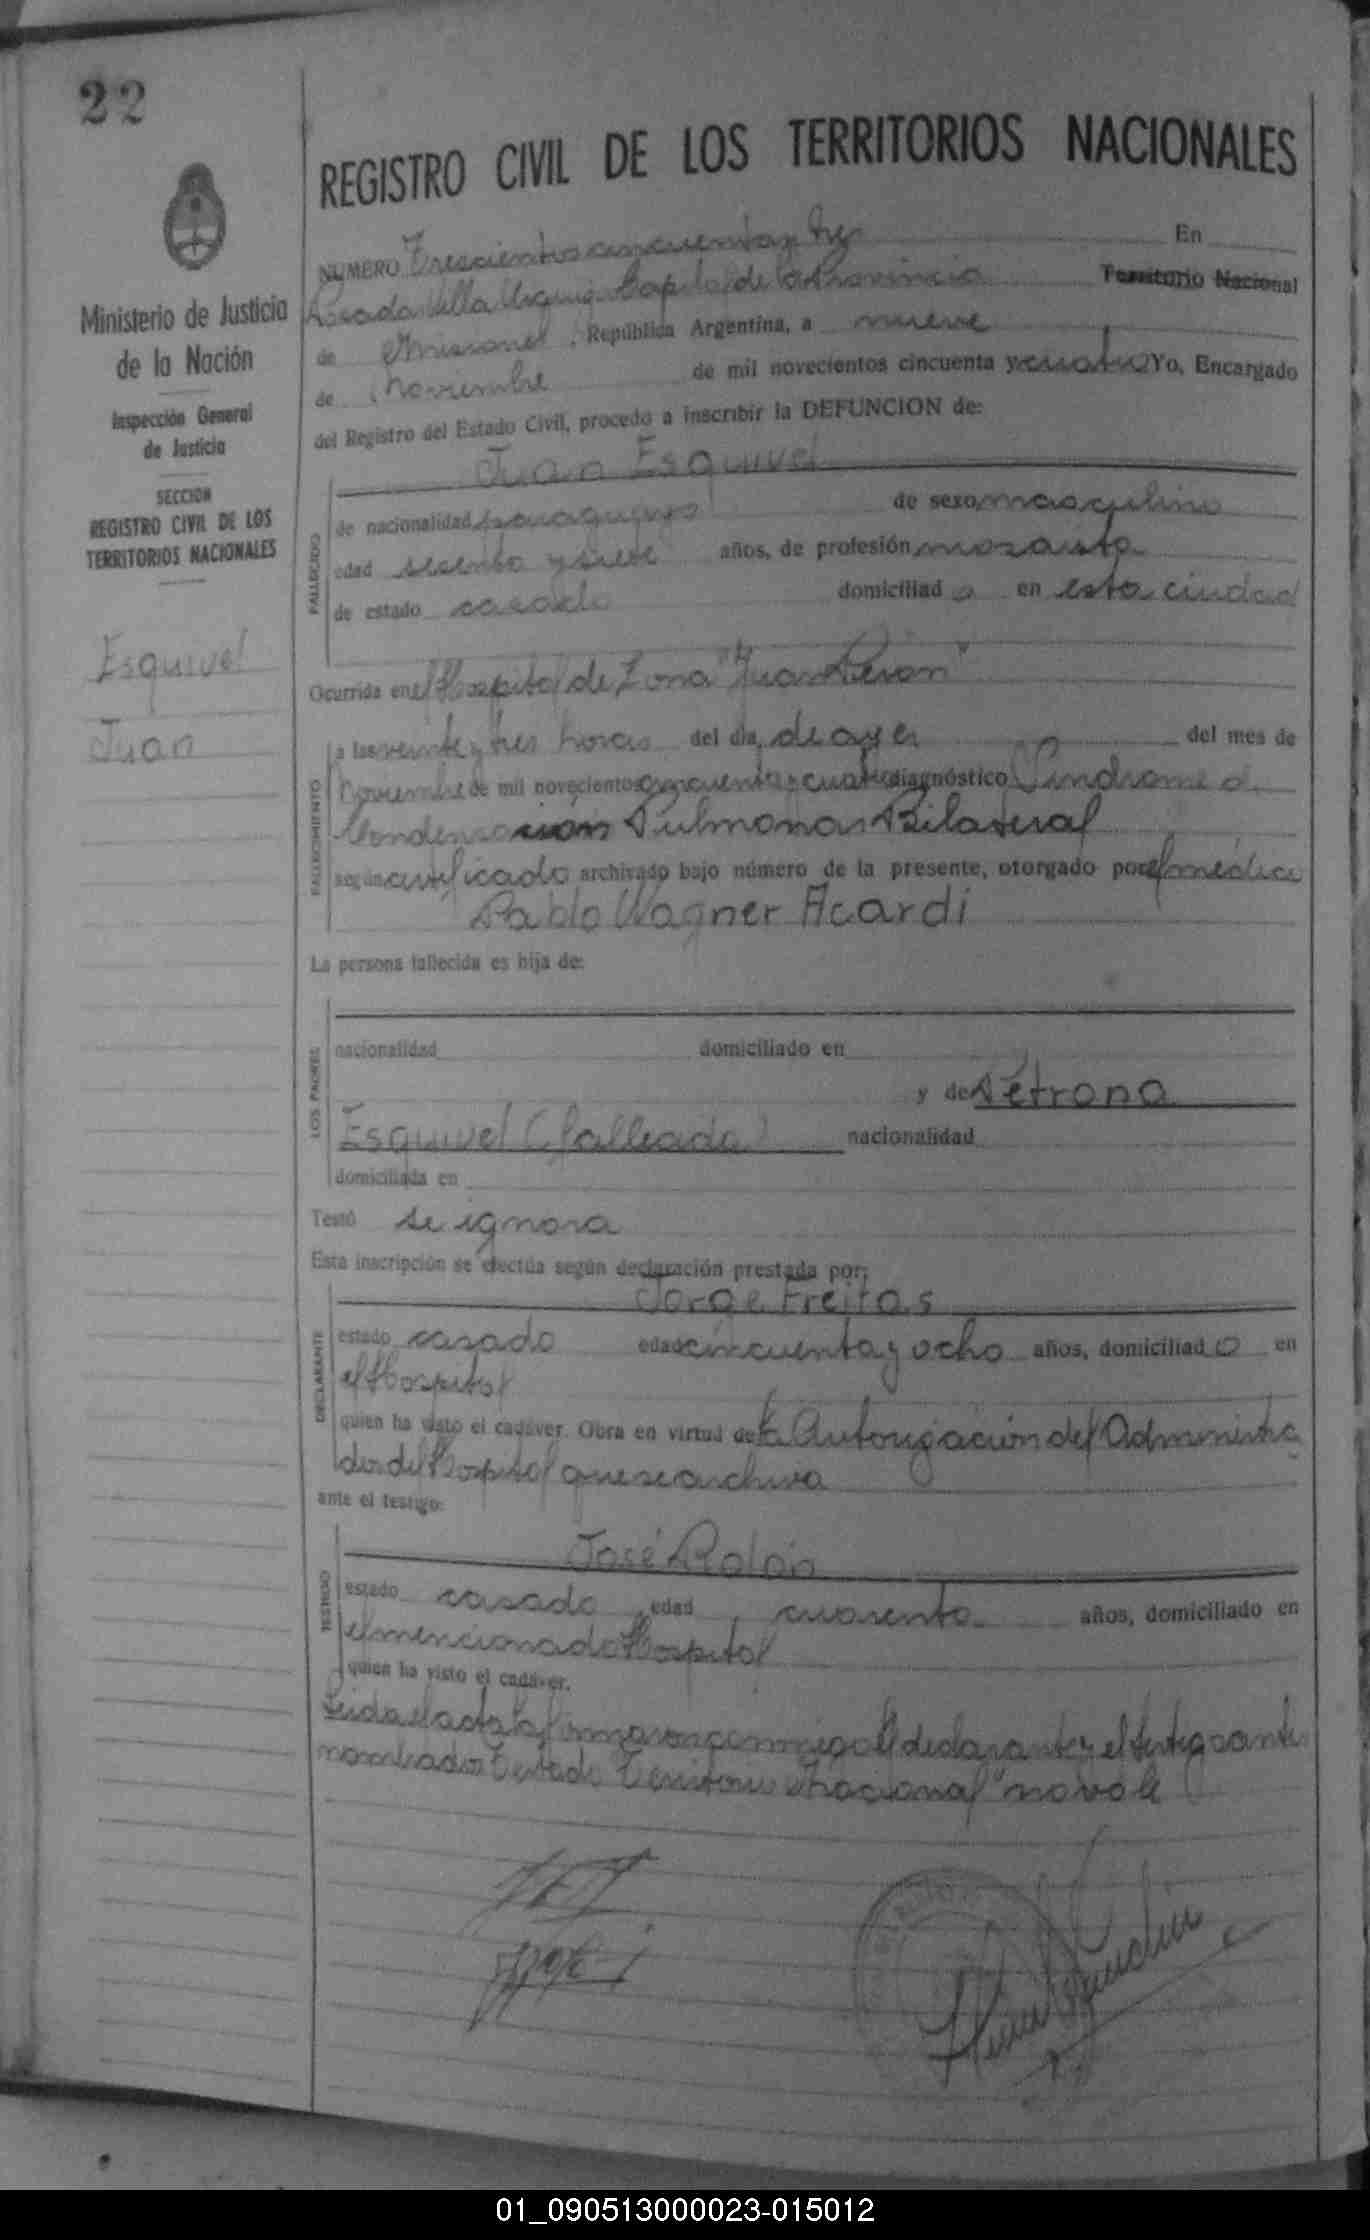 22
Ministerio de Justicia
de la Nación
Inspección General
de Justicia
SECCION
REGISTRO CIVIL DE LOS
TERRITORIOS NACIONALES
Esquivel
Juan
REGISTRO CIVIL DE LOS TERRITORIOS NACIONALES
NUMERO Trescientos cincuenta y tres En
Posadas Villa Urquiza Capital de la Provincia Territorio Nacional
de Misiones, República Argentina, a nueve
de Noviembre de mil novecientos cincuenta y cuatro Yo, Encargado
del Registro del Estado Civil, procedo a inscribir la DEFUNCION de:
Juan Esquivel
FALLECIDO
de nacionalidad paraguayo de sexo masculino
edad sesenta y siete años, de profesión mozaista
de estado casado domiciliad o en esta ciudad
Ocurrida en el Hospital de Zona "Juan Perón"
FALLECIMIENTO
a las veinte y tres horas del día, de ayer del mes de
Noviembre de mil novecientos cincuenta y cuatro diagnóstico Síndrome de
Condensación Pulmonar Bilateral
según certificado archivado bajo número de la presente, otorgado por el médico
Pablo Wagner Acardi
La persona fallecida es hija de:
LOS PADRES
nacionalidad domiciliado en
y de Petrona
Esquivel (fallecida) nacionalidad
domiciliada en
Testó se ignora
Esta inscripción se efectúa según declaración prestada por:
Jorge Freitas
DECLARANTE
estado casado edad cincuenta y ocho años, domiciliad o en
el Hospital
quien ha visto el cadáver. Obra en virtud de la Autorización del Administra
dor del Hospital que se archiva
ante el testigo:
José Rolón
TESTIGO
estado casado edad cuarenta años, domiciliado en
el mencionado Hospital
quien ha visto el cadáver.
Leida el acta la firmaron conmigo el declarante y el testigo antes
nombrados Testado Territorio Nacional "no vale
01_090513000023-015012